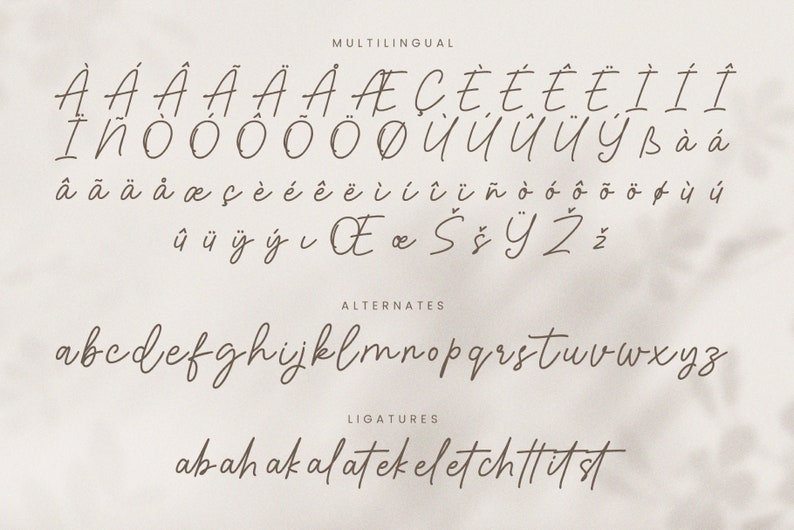 MULTILINGUAL
À Á Â Ã Ä Å Æ Ç È É Ê Ë Ì Í Î
Ï Ñ Ò Ó Ô Õ Ö Ø Ù Ú Û Ü Ý ß à á
â ã ä å æ ç è é ê ë ì í î ï ñ ò ó ô õ ö ø ù ú
û ü ÿ ý ı Œ œ Š š Ÿ Ž ž
ALTERNATES
abcdefghijklmnopqrstuvwxyz
LIGATURES
abahakalatekeletchttitst